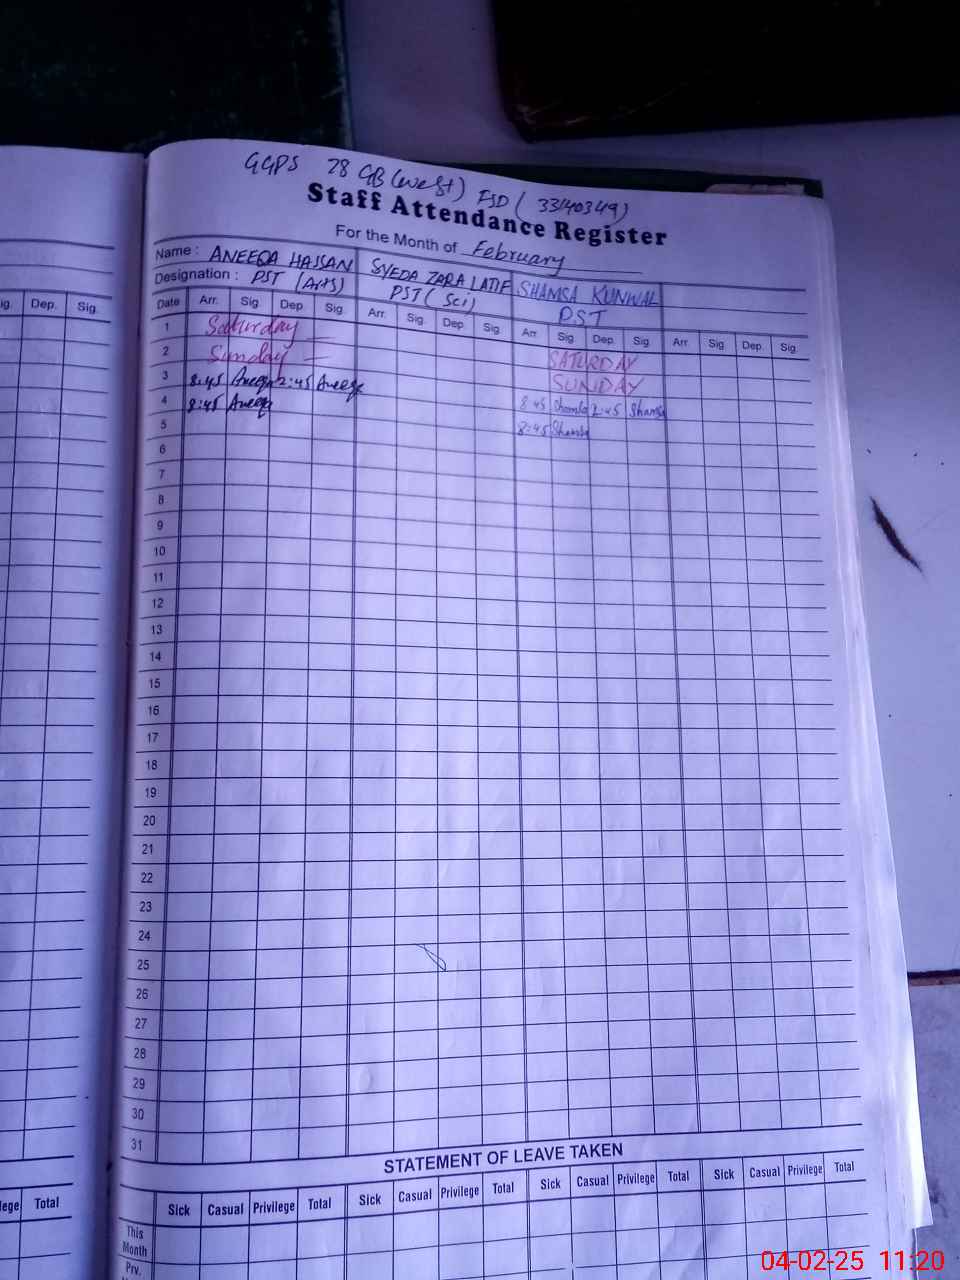 GGPS 28 GB (west) FSD (33140349)
Staff Attendance Register
For the Month of February
Name : ANEEQA HASSAN SYEDA ZARA LATIF SHAMSA KUNWAL
Designation : PST (Arts) PST (Sci) PST
ig. Dep. Sig.
Date Arr. Sig. Dep. Sig. Arr. Sig. Dep. Sig. Arr. Sig. Dep. Sig. Arr. Sig. Dep. Sig.
1 Saturday — SATURDAY
2 Sunday — SUNDAY
3 8:45 Aneeqa 2:45 Aneeqa 8:45 Shamsa 2:45 Shamsa
4 8:45 Aneeqa 8:45 Shamsa
5
6
7
8
9
10
11
12
13
14
15
16
17
18
19
20
21
22
23
24
25
26
27
28
29
30
31
STATEMENT OF LEAVE TAKEN
lege Total
Sick Casual Privilege Total Sick Casual Privilege Total Sick Casual Privilege Total Sick Casual Privilege Total
This Month
Prv.
04-02-25 11:20